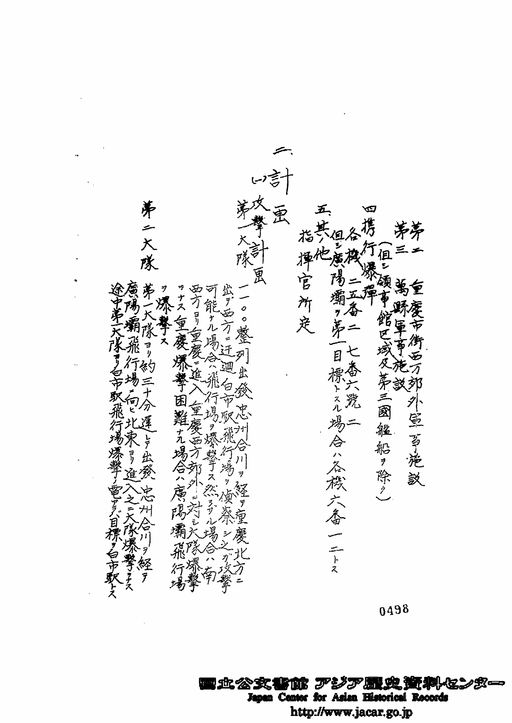 第二 重慶市街西方郊外軍事施設
第三 萬縣軍事施設
(但シ領事館区域及第三國艦船ヲ除ク)
四、携行爆彈
各機 二五番二 七番六號二
但シ廣陽壩ヲ第一目標トスル場合ハ各機六番一二トス
五、其ノ他
指揮官所定
二、計画
(一)攻撃計画
第一大隊
一一〇〇整列出發忠州合川ヲ経テ重慶北方ニ
出デ西方ニ迂廻白市駅飛行場ヲ偵察シ之ガ攻撃
可能ナル場合ハ飛行場ヲ爆撃ス然ラザル場合ハ南
西方ヨリ重慶ニ進入重慶西方郊外ニ対シ大隊爆撃
ヲナス重慶爆撃困難ナル場合ハ廣陽壩飛行場
ヲ爆撃ス
第二大隊
第一大隊ヨリ約三十分遅レテ出發忠州合川ヲ経テ
廣陽壩飛行場ニ向ヒ北東ヨリ進入之ニ大隊爆撃ヲナス
途中第一大隊ヨリ白市駅飛行場爆撃ノ電アラバ目標ヲ白市駅トス
0498
国立公文書館 アジア歴史資料センター
Japan Center for Asian Historical Records
http://www.jacar.go.jp